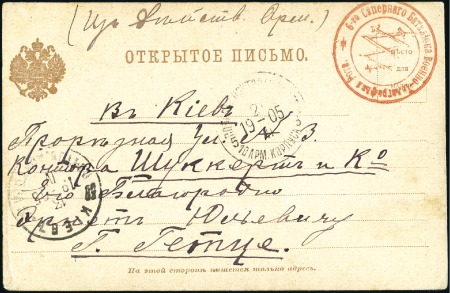 (Из Действ. Арм.)
ОТКРЫТОЕ ПИСЬМО.
6-го Сапернаго Баталіона Военно-Телеграфная Рота
Мѣсто
для
19 05
10 АРМ. КОРПУСА
Въ Кіевъ
Прорѣзная Ул.
Контора Шуккертъ и Ко
Его Благородію
Юльевичу
Г. Гетце.
КІЕВЪ
На этой сторонѣ пишется только адресъ.